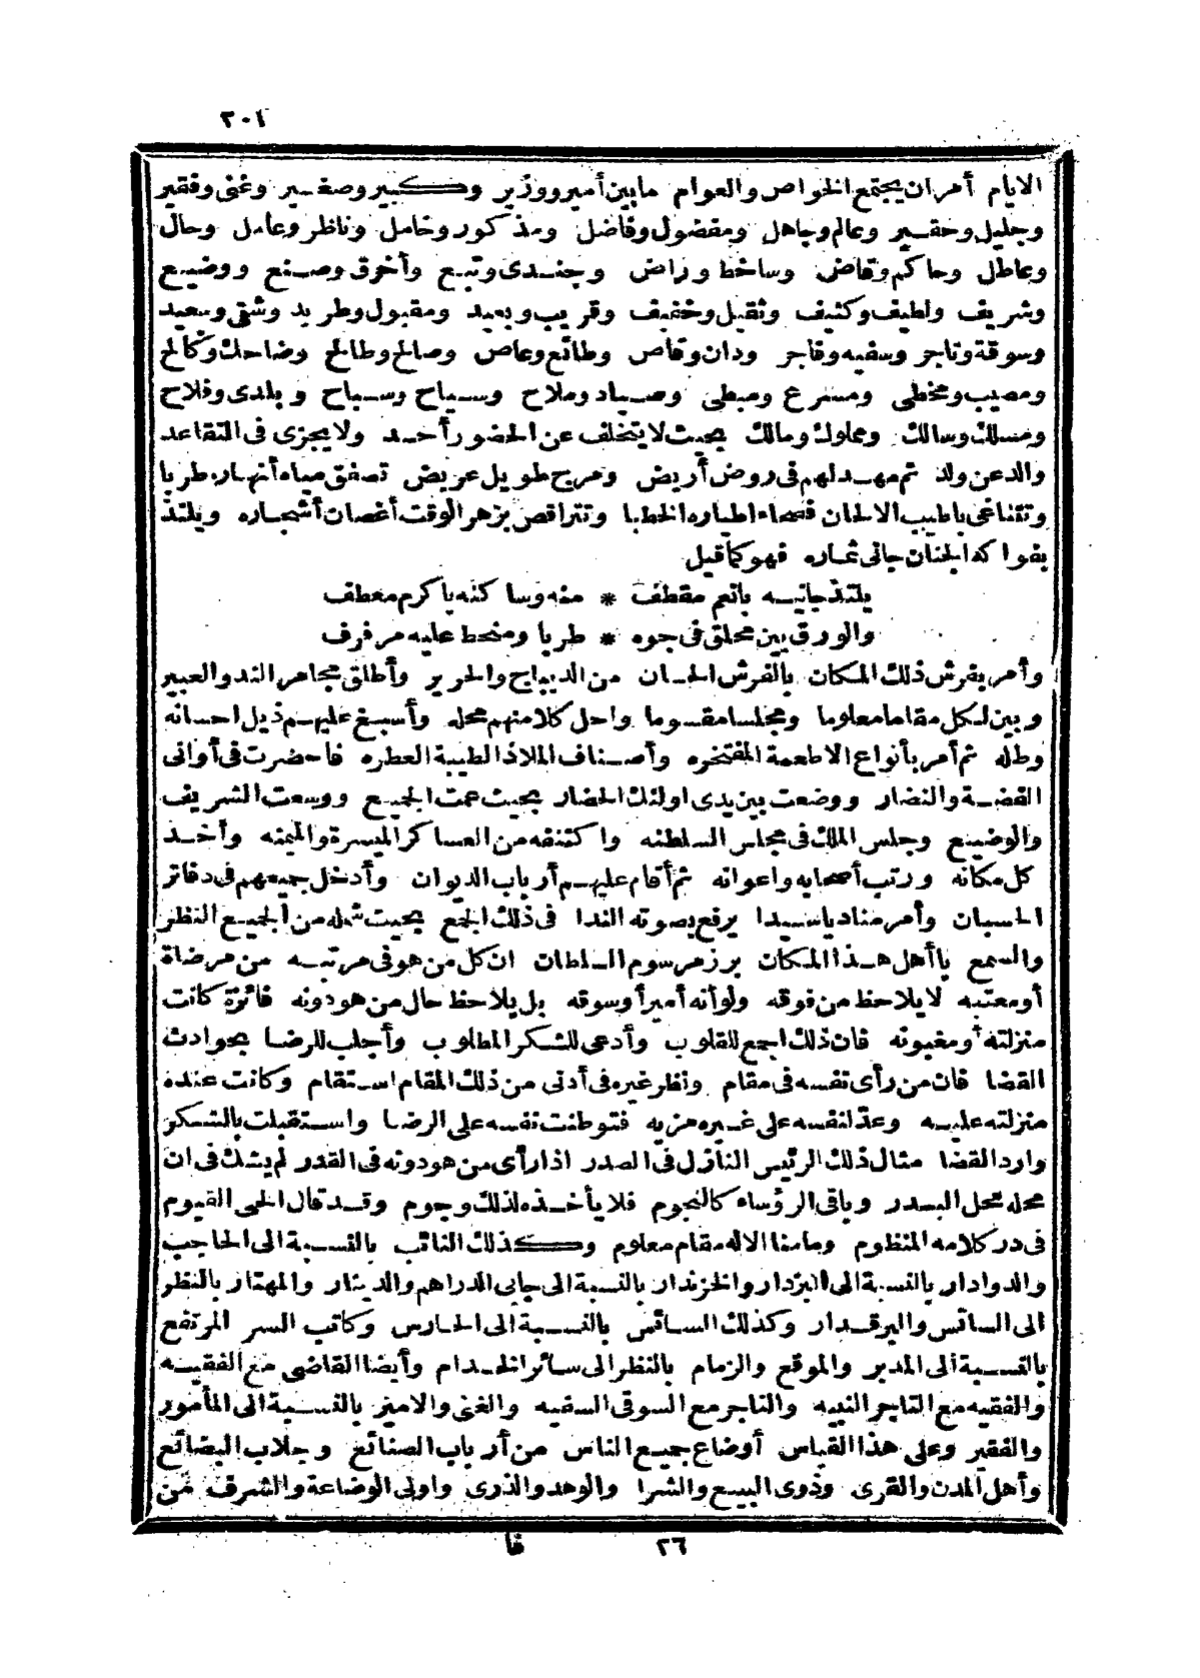 ٢٠١
الايام أمر ان يجتمع الخواص والعوام مابين أمير ووزير وكبير وصغير وغنى وفقير
وجليل وحقير وعالم وجاهل ومفضول وفاضل ومذكور وخامل وناظر وعامل وحال
وعاطل وحاكم وقاض وساخط وراض وجندى وتبع وأخرق وصنع ووضيع
وشريف ولطيف وكثيف وثقيل وخفيف وقريب وبعيد ومقبول وطريد وشقى وسعيد
وسوقة وتاجر وسفيه وفاجر ودان وقاص وطائع وعاص وصالح وطالح وضاحك وكالح
ومصيب ومخطى ومسرع ومبطى وصياد وملاح وسياح وسباح وبلدى وفلاح
ومسلك وسالك ومملوك ومالك بحيث لا يتخلف عن الحضور أحد ولا يجزى فى التقاعد
والد عن ولد ثم مهد لهم فى روض أريض ومرج طويل عريض تصفق مياه أنهاره طربا
وتتناغى باطيب الالحان فصحاء اطياره الخطبا وتتراقص بزهر الوقت أغصان أشجاره ويلتذ
بفواكه الجنان جانى ثماره فهو كما قيل
يلتذ جانيه بانعم مقطف * منه وساكنه باكرم معطف
والورق بين محلق فى جوه * طربا ومنحط عليه مرفرف
وأمر بفرش ذلك المكان بالفرش الحسان من الديباج والحرير وأطلق مجامر الند والعبير
وبين لكل مقاما معلوما ومجلسا مقسوما واحل كلا منهم محله وأسبغ عليهم ذيل احسانه
وطله ثم أمر بأنواع الاطعمة المفتخره وأصناف الملاذ الطيبة العطره فاحضرت فى أوانى
الفضة والنضار ووضعت بين يدى اولئك الحضار بحيث عمت الجميع ووسعت الشريف
والوضيع وجلس الملك فى مجلس السلطنه واكتنفه من العساكر الميسرة والميمنه وأخذ
كل مكانه ورتب أصحابه واعوانه ثم أقام عليهم أرباب الديوان وأدخل جميعهم فى دفاتر
الحسبان وأمر مناديا سيدا يرفع بصوته الندا فى ذلك الجمع بحيث شمله من الجميع النظر
والسمع ياأهل هذا المكان برز مرسوم السلطان ان كل من هو فى مرتبه من مرضاة
أو معتبه لا يلاحظ من فوقه ولو أنه أميرا وسوقه بل يلاحظ حال من هو دونه فائزة كانت
منزلته أو مغبونه فان ذلك اجمع للقلوب وأدعى للشكر المطلوب وأجلب للرضا بحوادث
القضا فان من رأى نفسه فى مقام ونظر غيره فى أدنى من ذلك المقام استقام وكانت عنده
منزلته عليه وعد لنفسه على غيره مزيه فتوطنت نفسه على الرضا واستقبلت بالشكر
وارد القضا مثال ذلك الرئيس النازل فى الصدر اذا رأى من هو دونه فى القدر لم يشك فى ان
محله محل البدر وباقى الرؤساء كالنجوم فلا يأخذه لذلك وجوم وقد قال الحى القيوم
فى در كلامه المنظوم ومامنا الا له مقام معلوم وكذلك النائب بالنسبة الى الحاجب
والدوادار بالنسبة الى البزدار والخزندار بالنسبة الى جابى الدراهم والدينار والمهتار بالنظر
الى السائس والبرقدار وكذلك السائس بالنسبة الى الحارس وكاتب السر المرتفع
بالنسبة الى المدبر والموقع والزمام بالنظر الى سائر الخدام وأيضا القاضى مع الفقيه
والفقيه مع التاجر النبيه والتاجر مع السوقى السفيه والغنى والامير بالنسبة الى المأمور
والفقير وعلى هذا القياس أوضاع جميع الناس من أرباب الصنائع وجلاب البضائع
وأهل المدن والقرى وذوى البيع والشرا والوهد والذرى واولى الوضاعة والشرف من
٢٦ فا